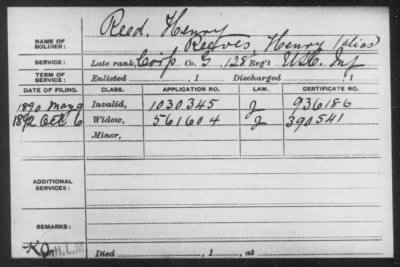 Reed, Henry
NAME OF SOLDIER: Reeves, Henry (alias)
SERVICE: Late rank, Corp Co. G, 128 Reg't U.S.C. Inf
TERM OF SERVICE: Enlisted , 1 Discharged , 1
DATE OF FILING. CLASS. APPLICATION NO. LAW. CERTIFICATE NO.
1890 May 9 Invalid, 1030345 J 936186
1892 Oct 6 Widow, 561604 J 390541
Minor,
ADDITIONAL SERVICES:
REMARKS:
Died , 1 , at